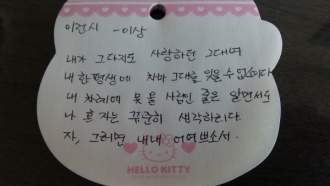 이런시 -이상
내가 그다지도 사랑하던 그대여
내 한평생에 차마 그대를 잊을 수 없소이다
내 차례에 못 올 사람인 줄은 알면서도
나 혼자는 꾸준히 생각하리다.
자, 그러면 내내 어여쁘소서.
HELLO KITTY